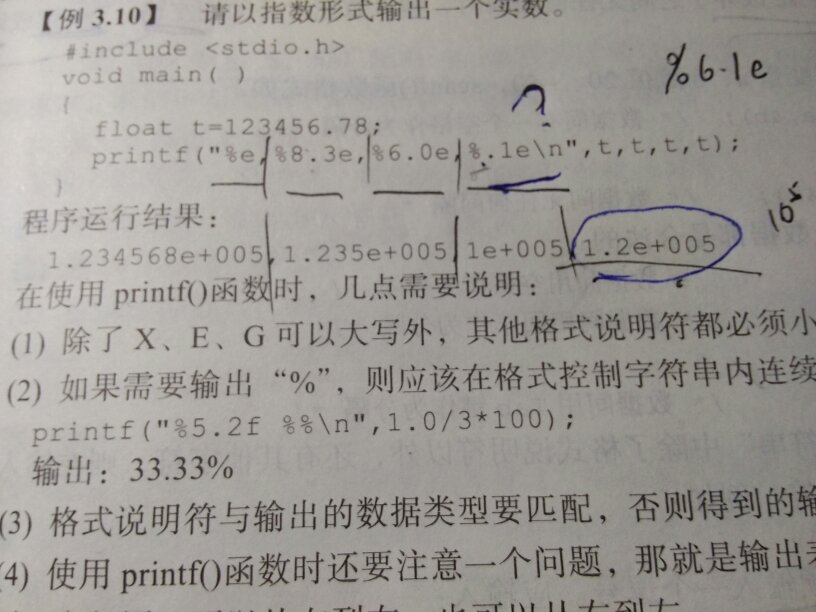 【例 3.10】 请以指数形式输出一个实数。
#include <stdio.h>
void main( )
%6.1e
{
?
float t=123456.78;
printf("%e,%8.3e,%6.0e,%.1e\n",t,t,t,t);
}
程序运行结果:
10⁵
1.234568e+005,1.235e+005,1e+005,1.2e+005
在使用 printf()函数时，几点需要说明：
(1) 除了 X、E、G 可以大写外，其他格式说明符都必须小
(2) 如果需要输出“%”，则应该在格式控制字符串内连续
printf("%5.2f %%\n",1.0/3*100);
输出：33.33%
(3) 格式说明符与输出的数据类型要匹配，否则得到的输
(4) 使用 printf()函数时还要注意一个问题，那就是输出